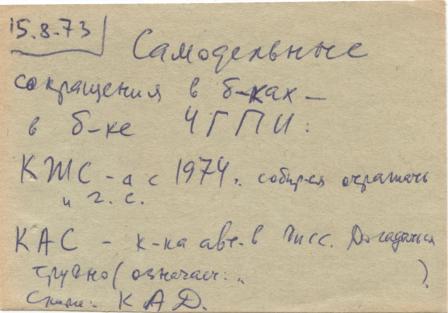 15.8.73
Самодельные
сокращения в б-ках –
в б-ке ЧГПИ:
КЖС - а с 1974. собирая отражать
и г. с.
КАС - к-ка авт-в дисс. Догадаться
трудно (означает: .. ).
КАД.